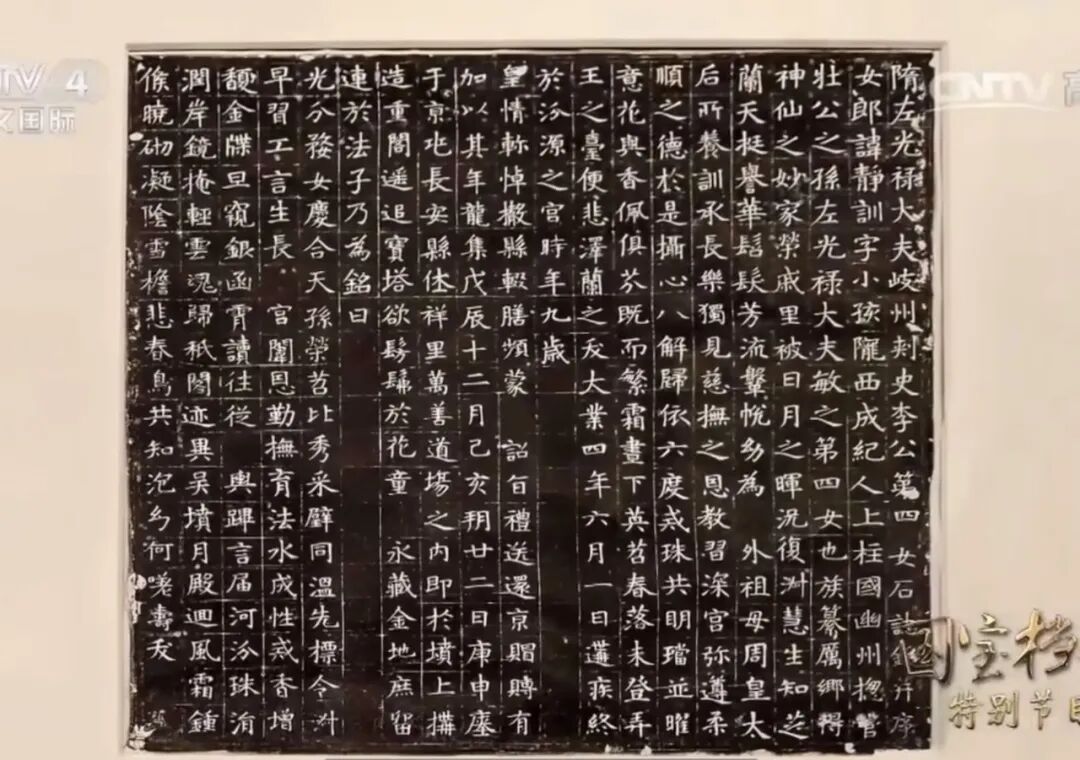 隋左光禄大夫岐州刾史李公第四女石誌銘并序
女郎諱靜訓字小孩隴西成紀人上柱國幽州揔管
壮公之孫左光禄大夫敏之第四女也族纂厲鄉得
神仙之妙家榮戚里被日月之暉況復淑慧生知芝
蘭天挺譽華髫髮芳流鞶帨幼為 外祖母周皇太
后所養訓承長樂獨見慈撫之恩教習深宮弥遵柔
順之德於是攝心八解歸依六度戒珠共明璫並曜
意花與香佩俱芬既而繁霜晝下英苕春落未登弄
王之臺便悲澤蘭之夭大業四年六月一日遘疾終
於汾源之宮時年九歲
皇情軫悼撤縣輟膳頻蒙 詔旨禮送還京賵賻有
加以其年龍集戊辰十二月己亥朔廿二日庚申塟
于京兆長安縣休祥里萬善道場之內即於墳上搆
造重閣遥追寶塔欲髣髴於花童 永藏金地庶留
連於法子乃為銘曰
光分婺女慶合天孫榮苕比秀采璧同溫先標令淑
早習工言生長 宮闈恩勤撫育法水成性戒香增
馥金牒旦窺銀函霄讀往從 輿蹕言届河汾珠
潤岸鏡掩輕雲魂歸秖閣迹異吳墳月殿迴風霜鍾
候曉砌凝陰雪檐悲春鳥共知泡幻何嗟壽夭
TV 4
国际
CNTV 高
国宝档
特别节目